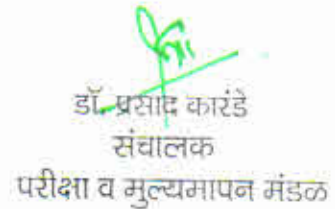 डॉ. प्रसाद कारंडे
संचालक
परीक्षा व मुल्यमापन मंडळ